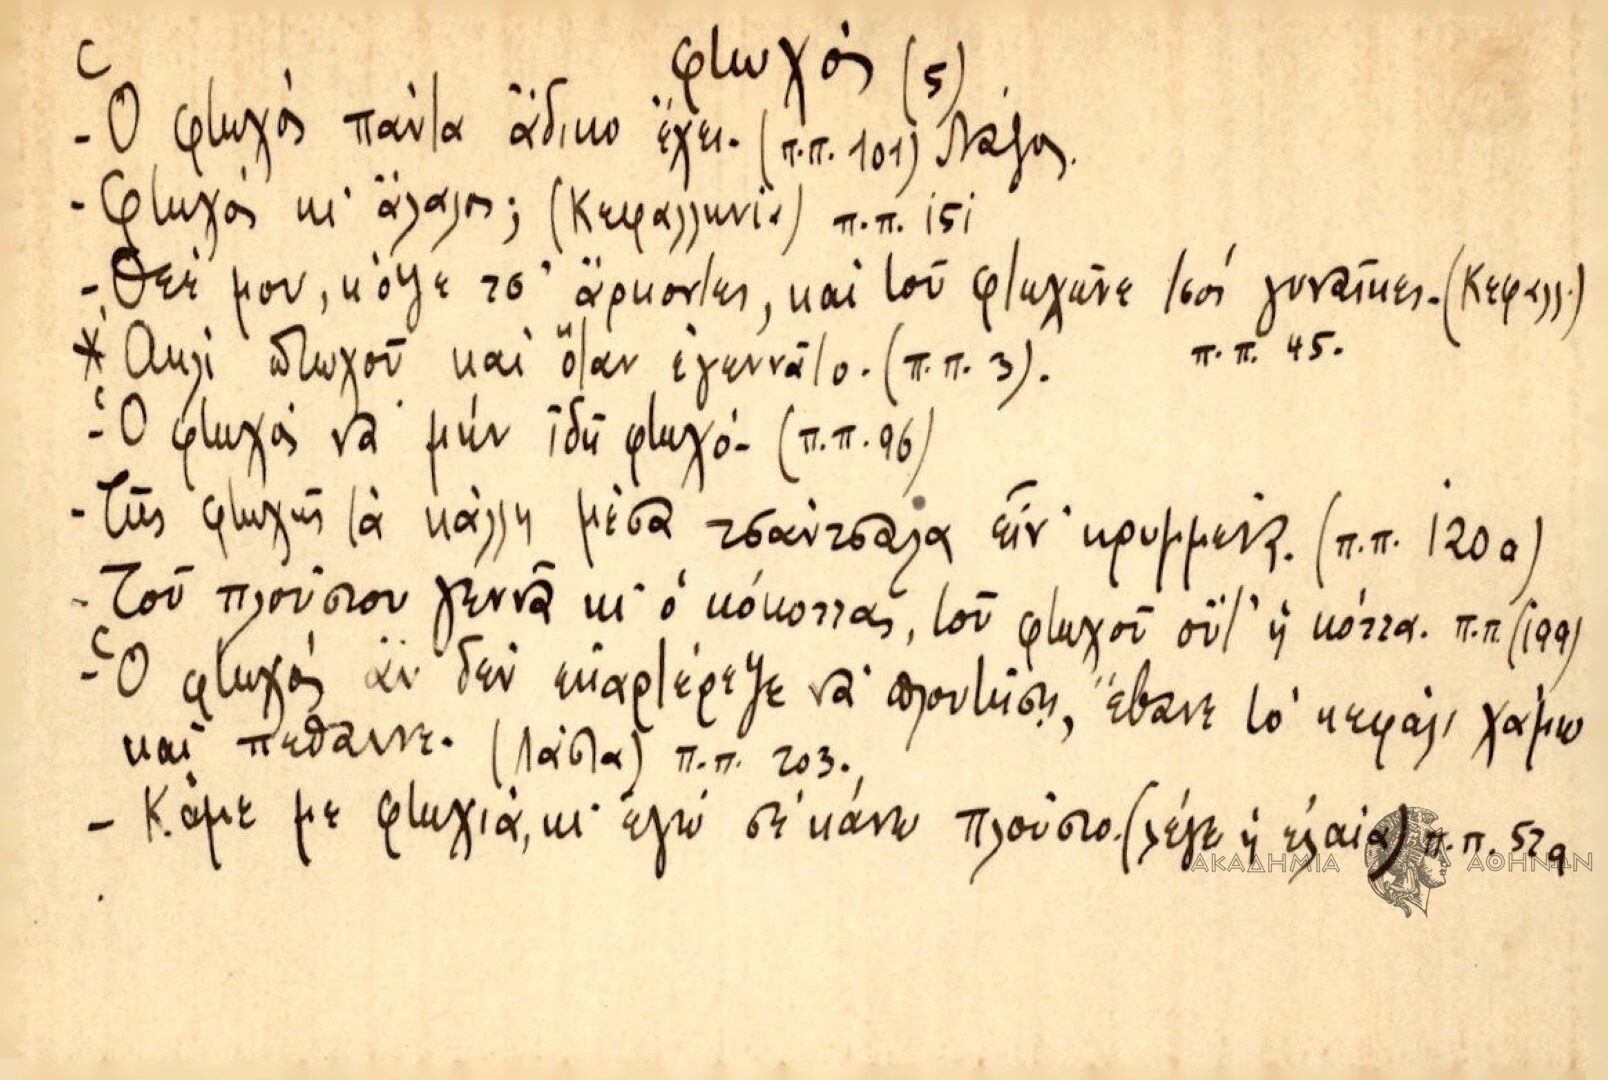 φτωχός (5)
- Ὁ φτωχός πάντα ἄδικο ἔχει. (π.π. 101)
- Φτωχός κι' ἄλαλος; (Κεφαλληνία) π.π. 151
- Θεέ μου, κόψε τσ' ἄρκοντες, καί τοῦ φτωχῶνε τσού γυναῖκες. (Κεφαλλ.)
π.π. 45.
* πτωχοῦ καί ὅταν ἐγεννᾶτο. (π.π. 3).
- Ὁ φτωχός νά μήν ἰδῆ φτωχό. (π.π. 96)
- Τῆς φτωχῆς τά κάλλη μέσα τσάντσαλα εἶν' κρυμμένα. (π.π. 120α)
- Τοῦ πλούσιου γεννᾶ κι' ὁ κόκοττας, τοῦ φτωχοῦ οὔτ' ἡ κόττα. π.π (199)
- Ὁ φτωχός ἄν δέν ἐκαρτέρεψε νά πλουτήσῃ, ἔβανε τό κεφάλι χάμω
καί πέθαινε. (Λάστα) π.π. 203.
- Κάμε με φτωχιά, κι' ἐγώ σέ κάνω πλούσιο. (λέγε ἡ ἐλαία) π.π. 52α
ΑΚΑΔΗΜΙΑ ΑΘΗΝΩΝ